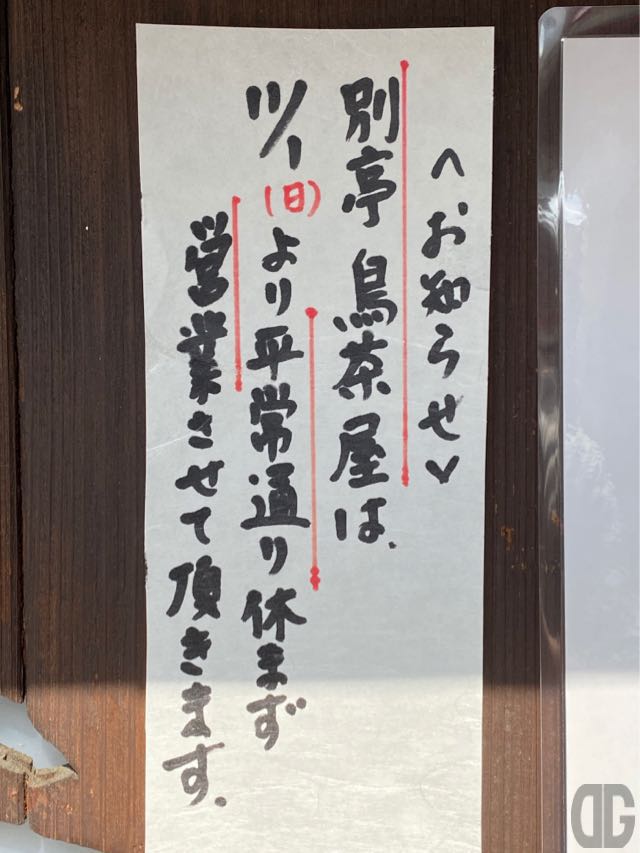 〈お知らせ〉
別亭 鳥茶屋は、
11/1(日)より平常通り休まず
営業させて頂きます。
DG